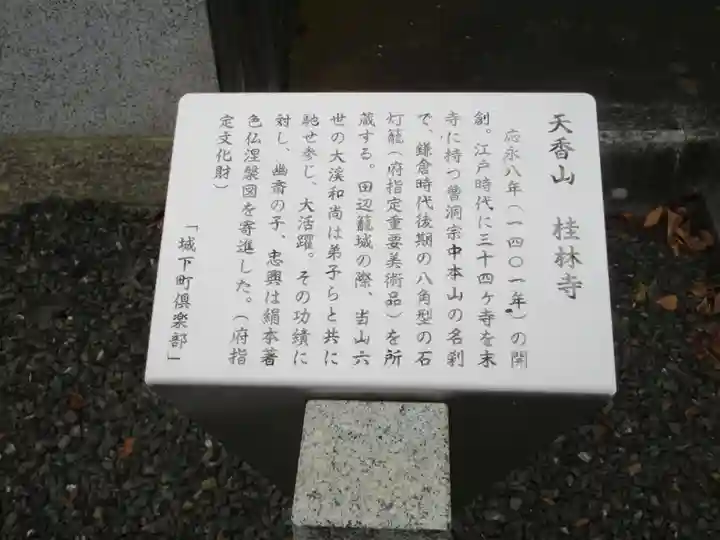 天香山　桂林寺
応永八年(一四〇一年)の開
創。江戸時代に三十四ヶ寺を末
寺に持つ曹洞宗中本山の名刹
で、鎌倉時代後期の八角型の石
灯籠(府指定重要美術品)を所
蔵する。田辺籠城の際、当山六
世の大溪和尚は弟子らと共に
馳せ参じ、大活躍。その功績に
対し、幽斎の子、忠興は絹本著
色仏涅槃図を寄進した。(府指
定文化財)
「城下町倶楽部」